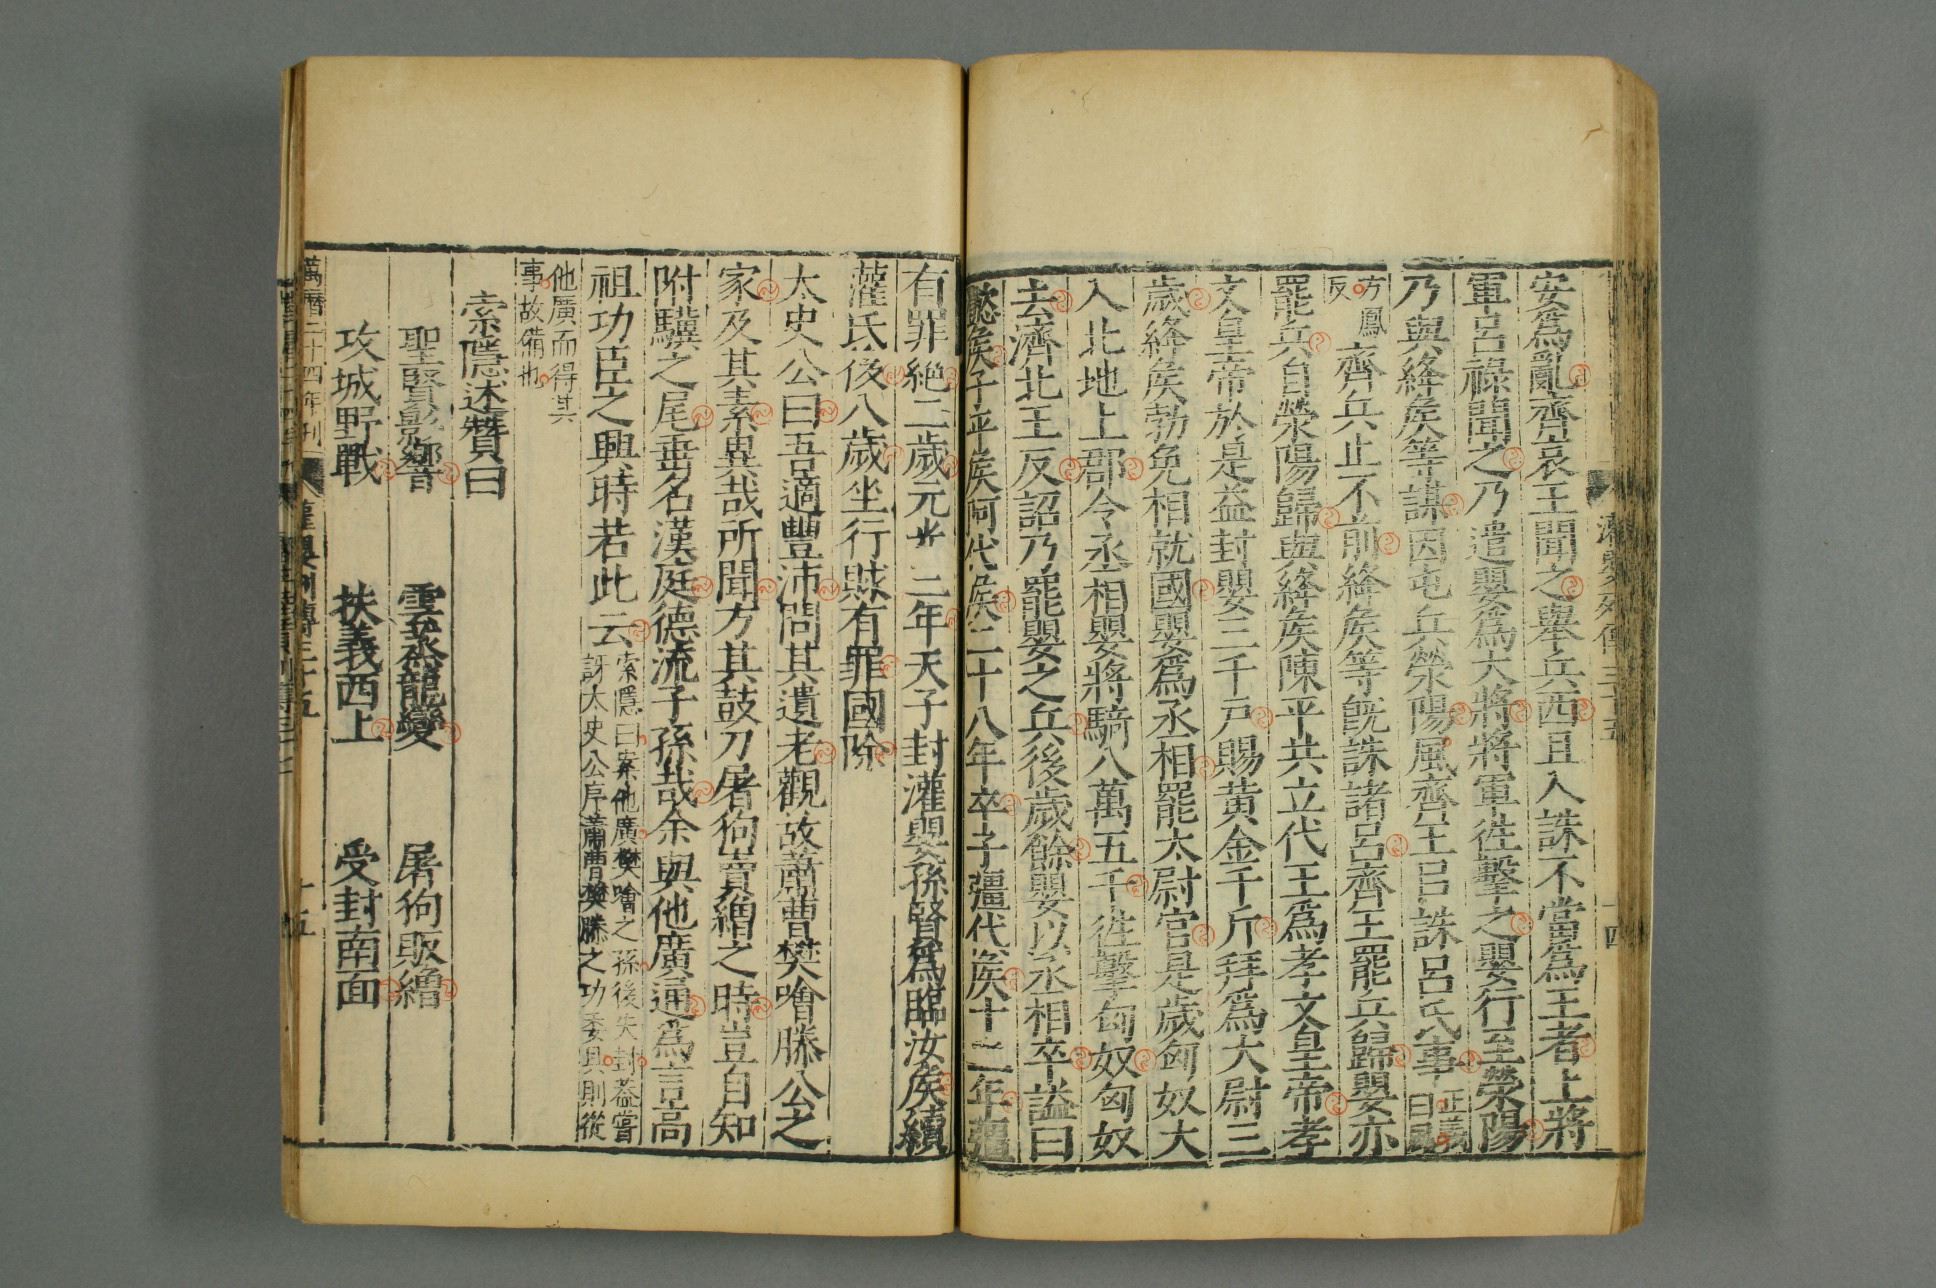 安爲亂齊哀王聞之舉兵西且入誅不當爲王者上將
軍呂祿聞之乃遣嬰爲大將將軍徃擊之嬰行至滎陽
乃與絳侯等謀因屯兵滎陽風齊王㠯誅呂氏事正義曰風
方鳳反齊兵止不前絳侯等旣誅諸呂齊王罷兵歸嬰亦
罷兵自滎陽歸與絳侯陳平共立代王爲孝文皇帝孝
文皇帝於是益封嬰三千戸賜黃金千斤拜爲大尉三
歲絳侯勃免相就國嬰爲丞相罷太尉官是歲匈奴大
入北地上郡令丞相嬰將騎八萬五千徃擊匈奴匈奴
去濟北王反詔乃罷嬰之兵後歲餘嬰以丞相卒謚曰
懿侯子平侯阿代侯二十八年卒子彊代侯十三年彊
有罪絶二歲元光三年天子封灌嬰孫賢爲臨汝侯續
灌氏後八歲坐行賕有罪國除
太史公曰吾適豐沛問其遺老觀故蕭曹樊噲滕公之
家及其素異哉所聞方其鼓刀屠狗賣繒之時豈自知
附驥之尾垂名漢庭德流子孫哉余與他廣通爲言高
祖功臣之興時若此云索隱曰案他廣樊噲之孫後失封葢嘗
訝太史公序蕭曹樊滕之功委具則從
他廣而得其
事故備也
索隱述贊曰
聖賢影響 雲蒸龍變 屠狗販繒
攻城野戰 扶義西上 受封南面
萬曆二十四年刊